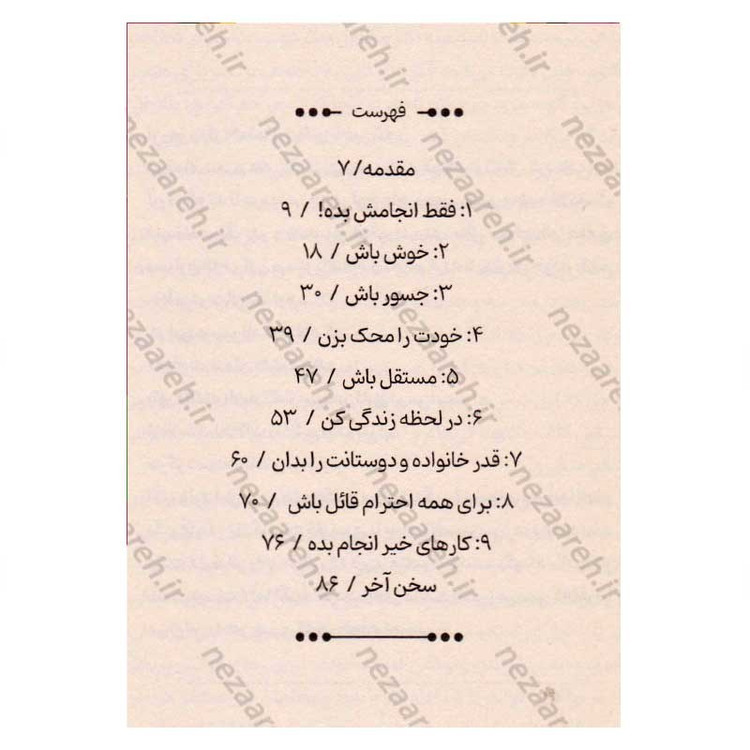 فهرست
مقدمه/ ۷
۱: فقط انجامش بده! / ۹
۲: خوش باش / ۱۸
۳: جسور باش / ۳۰
۴: خودت را محک بزن / ۳۹
۵: مستقل باش / ۴۷
۶: در لحظه زندگی کن / ۵۳
۷: قدر خانواده و دوستانت را بدان / ۶۰
۸: برای همه احترام قائل باش / ۷۰
۹: کارهای خیر انجام بده / ۷۶
سخن آخر / ۸۶
nezaareh.ir